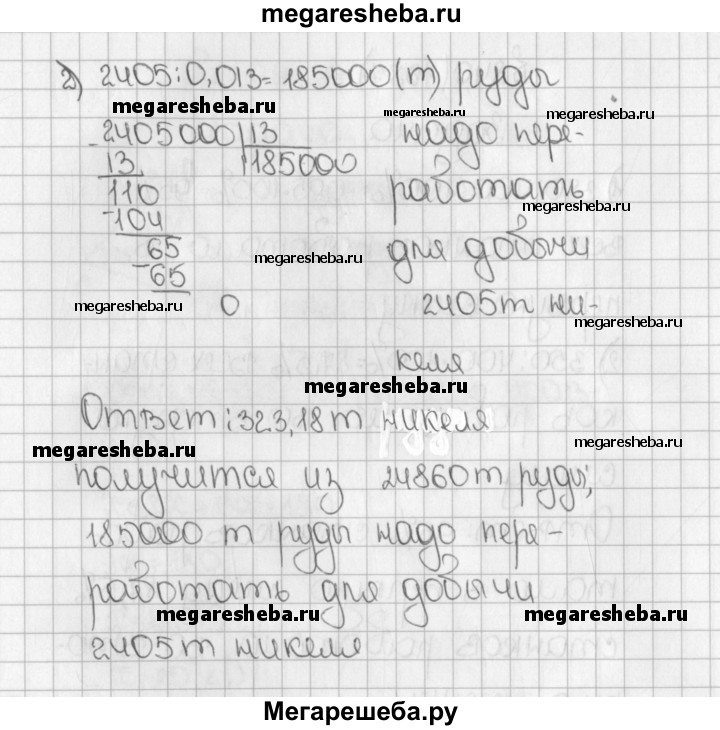 megaresheba.ru
2) 2405:0,013=185000(т) руды
megaresheba.ru megaresheba.ru
2405000 13 надо пере-
13 185000
110 работать
megaresheba.ru
-104
65 для добычи
megaresheba.ru
-65
megaresheba.ru 0 2405т ни-
megaresheba.ru
келя
megaresheba.ru
Ответ: 323,18т никеля
megaresheba.ru megaresheba.ru
получится из 24860т руды;
185000 т руды надо пере-
работать для добычи
megaresheba.ru megaresheba.ru
2405т никеля
Мегарешеба.ру